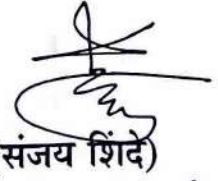 संजय शिंदे)